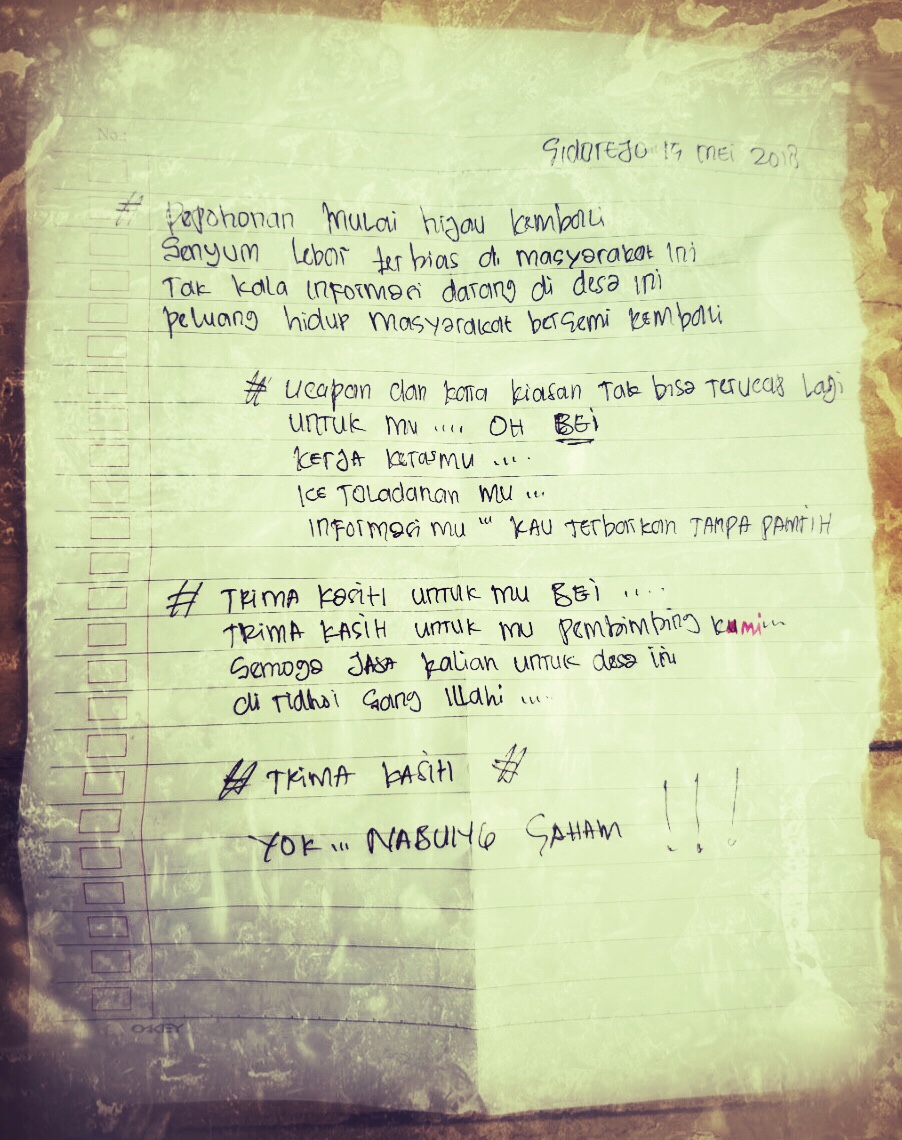 No:
SidoreJo 19 mei 2018
# Pepohonan Mulai hijau kembali
Senyum Lebar terbias di masyarakat ini
Tak kala informasi datang di desa ini
peluang hidup masyarakat bersemi kembali
# Ucapan dan kata kiasan Tak bisa Terucas Lagi
UNTUK MU .... OH BEi
KERJA KERASMU ....
KE TOLADANAN MU ...
INFORMASI MU ''' KAU TERBARKAN TAMPA PAMTIH
# TRIMA KASIH UNTUK MU BEI ....
TRIMA KASIH UNTUK MU pembimbing kami...
Semoga JASA kalian untuk desa ini
di ridhoi Sang Illahi ....
# TRIMA KASIH #
YOK ... NABUNG SAHAM !!!
OKEY